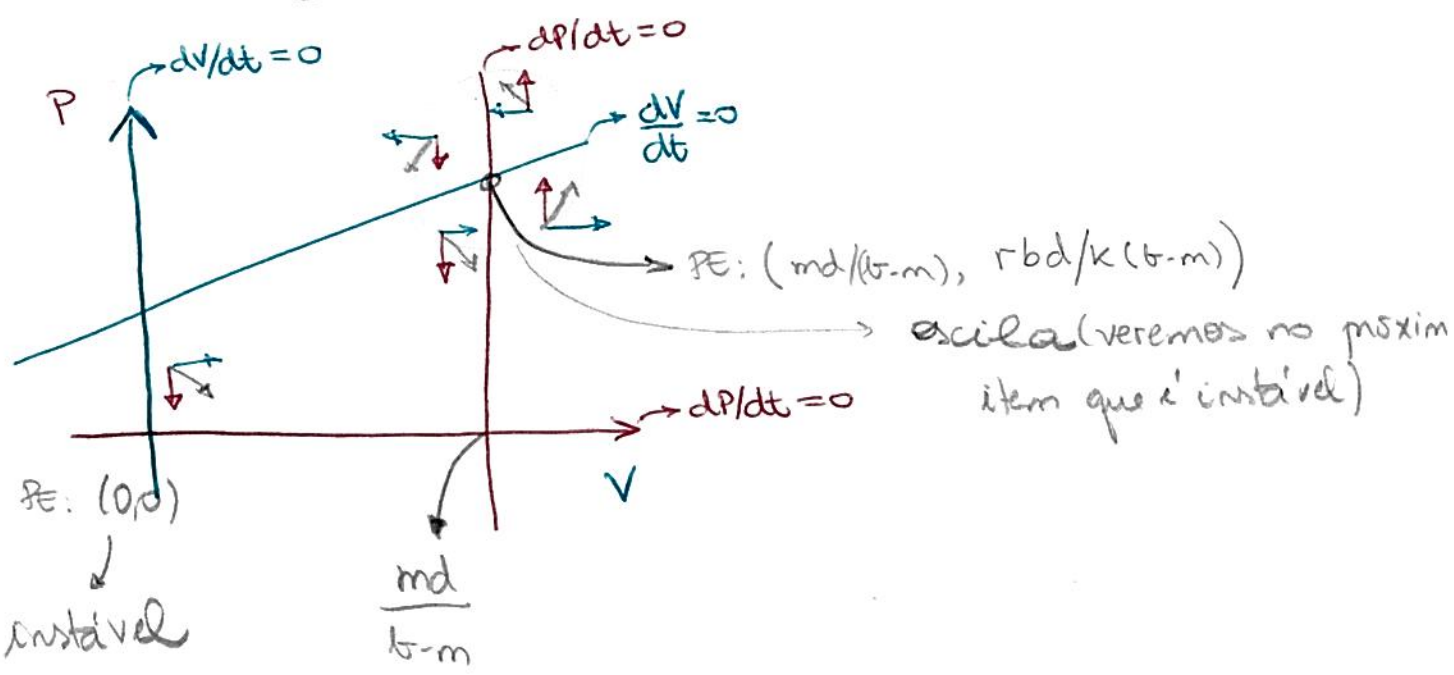 dV/dt = 0
dP/dt = 0
P
dV/dt = 0
PE: (md/(b-m), rbd/k(b-m))
oscila (veremos no próxim
item que é instável)
dP/dt = 0
V
PE: (0,0)
instável
md/b-m